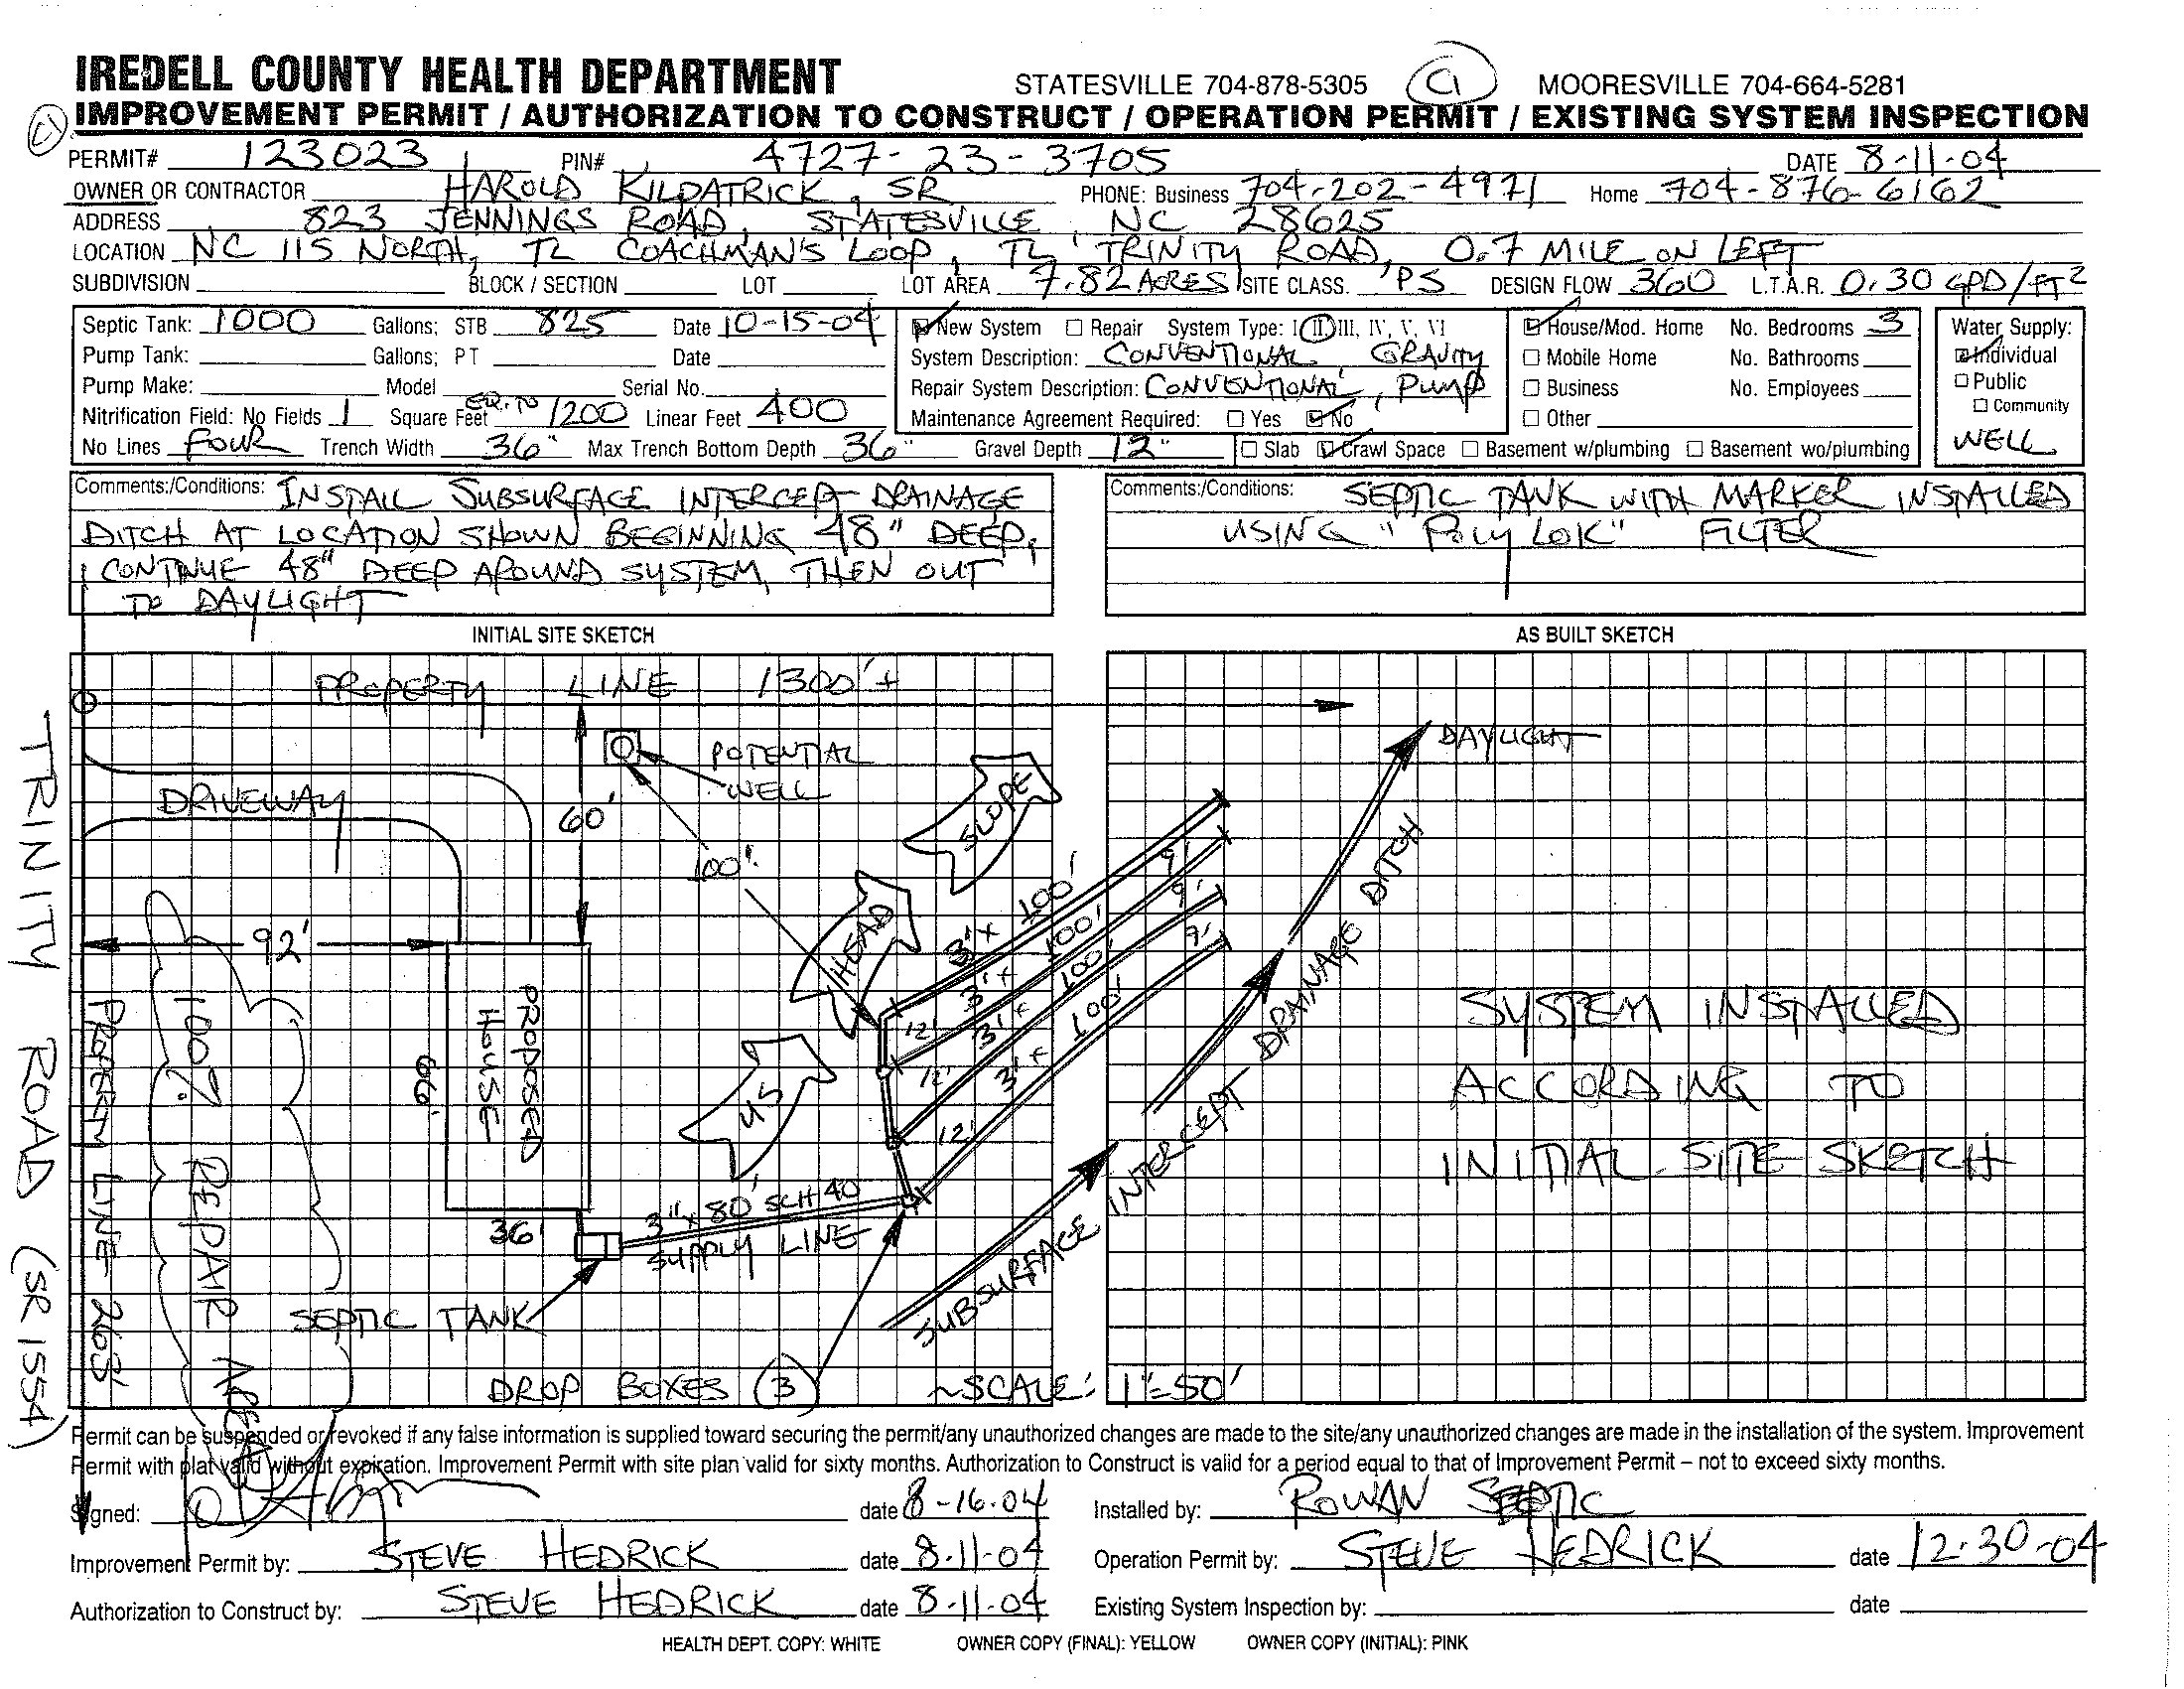 IREDELL COUNTY HEALTH DEPARTMENT STATESVILLE 704-878-5305 MOORESVILLE 704-664-5281
IMPROVEMENT PERMIT / AUTHORIZATION TO CONSTRUCT / OPERATION PERMIT / EXISTING SYSTEM INSPECTION
PERMIT# 123023 PIN# 4727-23-3705 DATE 8-11-04
OWNER OR CONTRACTOR HAROLD KILPATRICK, SR PHONE: Business 704-202-4971 Home 704-876-6162
ADDRESS 823 JENNINGS ROAD, STATESVILLE, NC 28625
LOCATION NC 115 NORTH, TL COACHMAN'S LOOP, TL TRINITY ROAD, 0.7 MILE ON LEFT
SUBDIVISION BLOCK / SECTION LOT LOT AREA 7.82 ACRES SITE CLASS. PS DESIGN FLOW 360 L.T.A.R. 0.30 GPD/FT2
Septic Tank: 1000 Gallons; STB 825 Date 10-15-04
Pump Tank: Gallons; PT Date
Pump Make: Model Serial No.
Nitrification Field: No Fields 1 Square Feet EQ. TO 1200 Linear Feet 400
No Lines FOUR Trench Width 36" Max Trench Bottom Depth 36" Gravel Depth 12"
New System Repair System Type: I II III, IV, V, VI
System Description: CONVENTIONAL GRAVITY
Repair System Description: CONVENTIONAL, PUMP
Maintenance Agreement Required: Yes No
House/Mod. Home No. Bedrooms 3
Mobile Home No. Bathrooms
Business No. Employees
Other
Slab Crawl Space Basement w/plumbing Basement wo/plumbing
Water Supply:
Individual
Public
Community
WELL
Comments:/Conditions: INSTALL SUBSURFACE INTERCEPT DRAINAGE
DITCH AT LOCATION SHOWN BEGINNING 48" DEEP,
CONTINUE 48" DEEP AROUND SYSTEM, THEN OUT
TO DAYLIGHT
Comments:/Conditions: SEPTIC TANK WITH MARKER INSTALLED
USING "POLY LOK" FILTER
INITIAL SITE SKETCH
AS BUILT SKETCH
PROPERTY LINE 1300'+
DAYLIGHT
POTENTIAL
WELL
DRIVEWAY
60'
100'
SLOPE
HEAD
US
92'
3'x 100'
3'x 100'
3'x 100'
3'x 100'
9'
9'
9'
12'
12'
12'
PROPOSED
HOUSE
66'
36'
3"x 80' SCH 40
SUPPLY LINE
SEPTIC TANK
DROP BOXES (3)
SUBSURFACE INTERCEPT DRAINAGE DITCH
~SCALE: 1"=50'
TRINITY ROAD (SR 1554)
PROPERTY LINE 263'
100% REPAIR AREA
SYSTEM INSTALLED
ACCORDING TO
INITIAL SITE SKETCH
Permit can be suspended or revoked if any false information is supplied toward securing the permit/any unauthorized changes are made to the site/any unauthorized changes are made in the installation of the system. Improvement
Permit with plat valid without expiration. Improvement Permit with site plan valid for sixty months. Authorization to Construct is valid for a period equal to that of Improvement Permit – not to exceed sixty months.
Signed: date 8-16-04 Installed by: ROWAN SEPTIC
Improvement Permit by: STEVE HEDRICK date 8-11-04 Operation Permit by: STEVE HEDRICK date 12-30-04
Authorization to Construct by: STEVE HEDRICK date 8-11-04 Existing System Inspection by: date
HEALTH DEPT. COPY: WHITE OWNER COPY (FINAL): YELLOW OWNER COPY (INITIAL): PINK